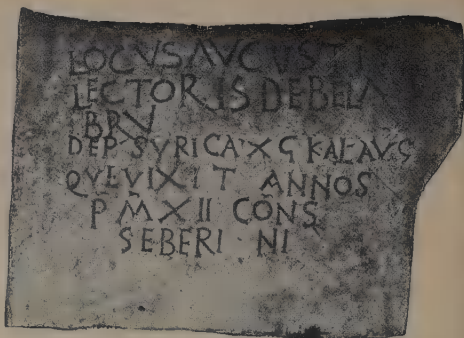 LOCVS AVGVSTI
LECTORIS DE BELA
BRV
DEP SVRICA XG KAL AVG
QVE VIXIT ANNOS
P M XII CONS
SEBERINI